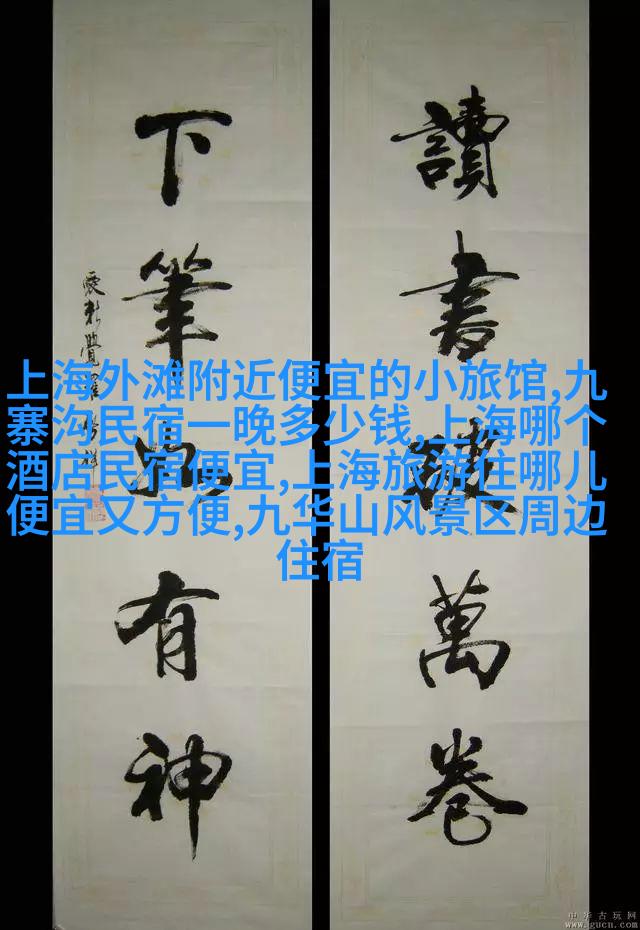 讀書破萬卷
下筆如有神
上海外滩附近便宜的小旅馆,九
寨沟民宿一晚多少钱,上海哪个
酒店民宿便宜,上海旅游住哪儿
便宜又方便,九华山风景区周边
住宿
中华古玩网
www.gucn.com